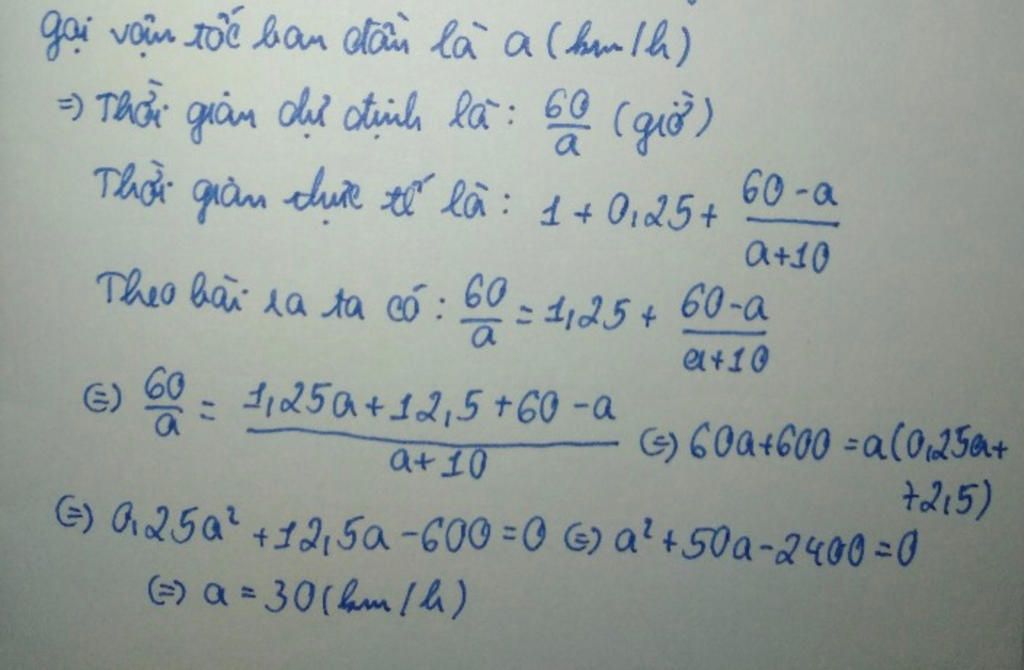 Gọi vận tốc ban đầu là a (km/h)
=) Thời gian dự định là: 60/a (giờ)
Thời gian thực tế là: 1 + 0,25 + (60-a)/(a+10)
Theo bài ra ta có: 60/a = 1,25 + (60-a)/(a+10)
(=) 60/a = (1,25a+12,5+60-a)/(a+10) (=) 60a+600 = a(0,25a+
+72,5)
(=) 0,25a² +12,5a-600=0 (=) a²+50a-2400=0
(=) a = 30 (km/h)